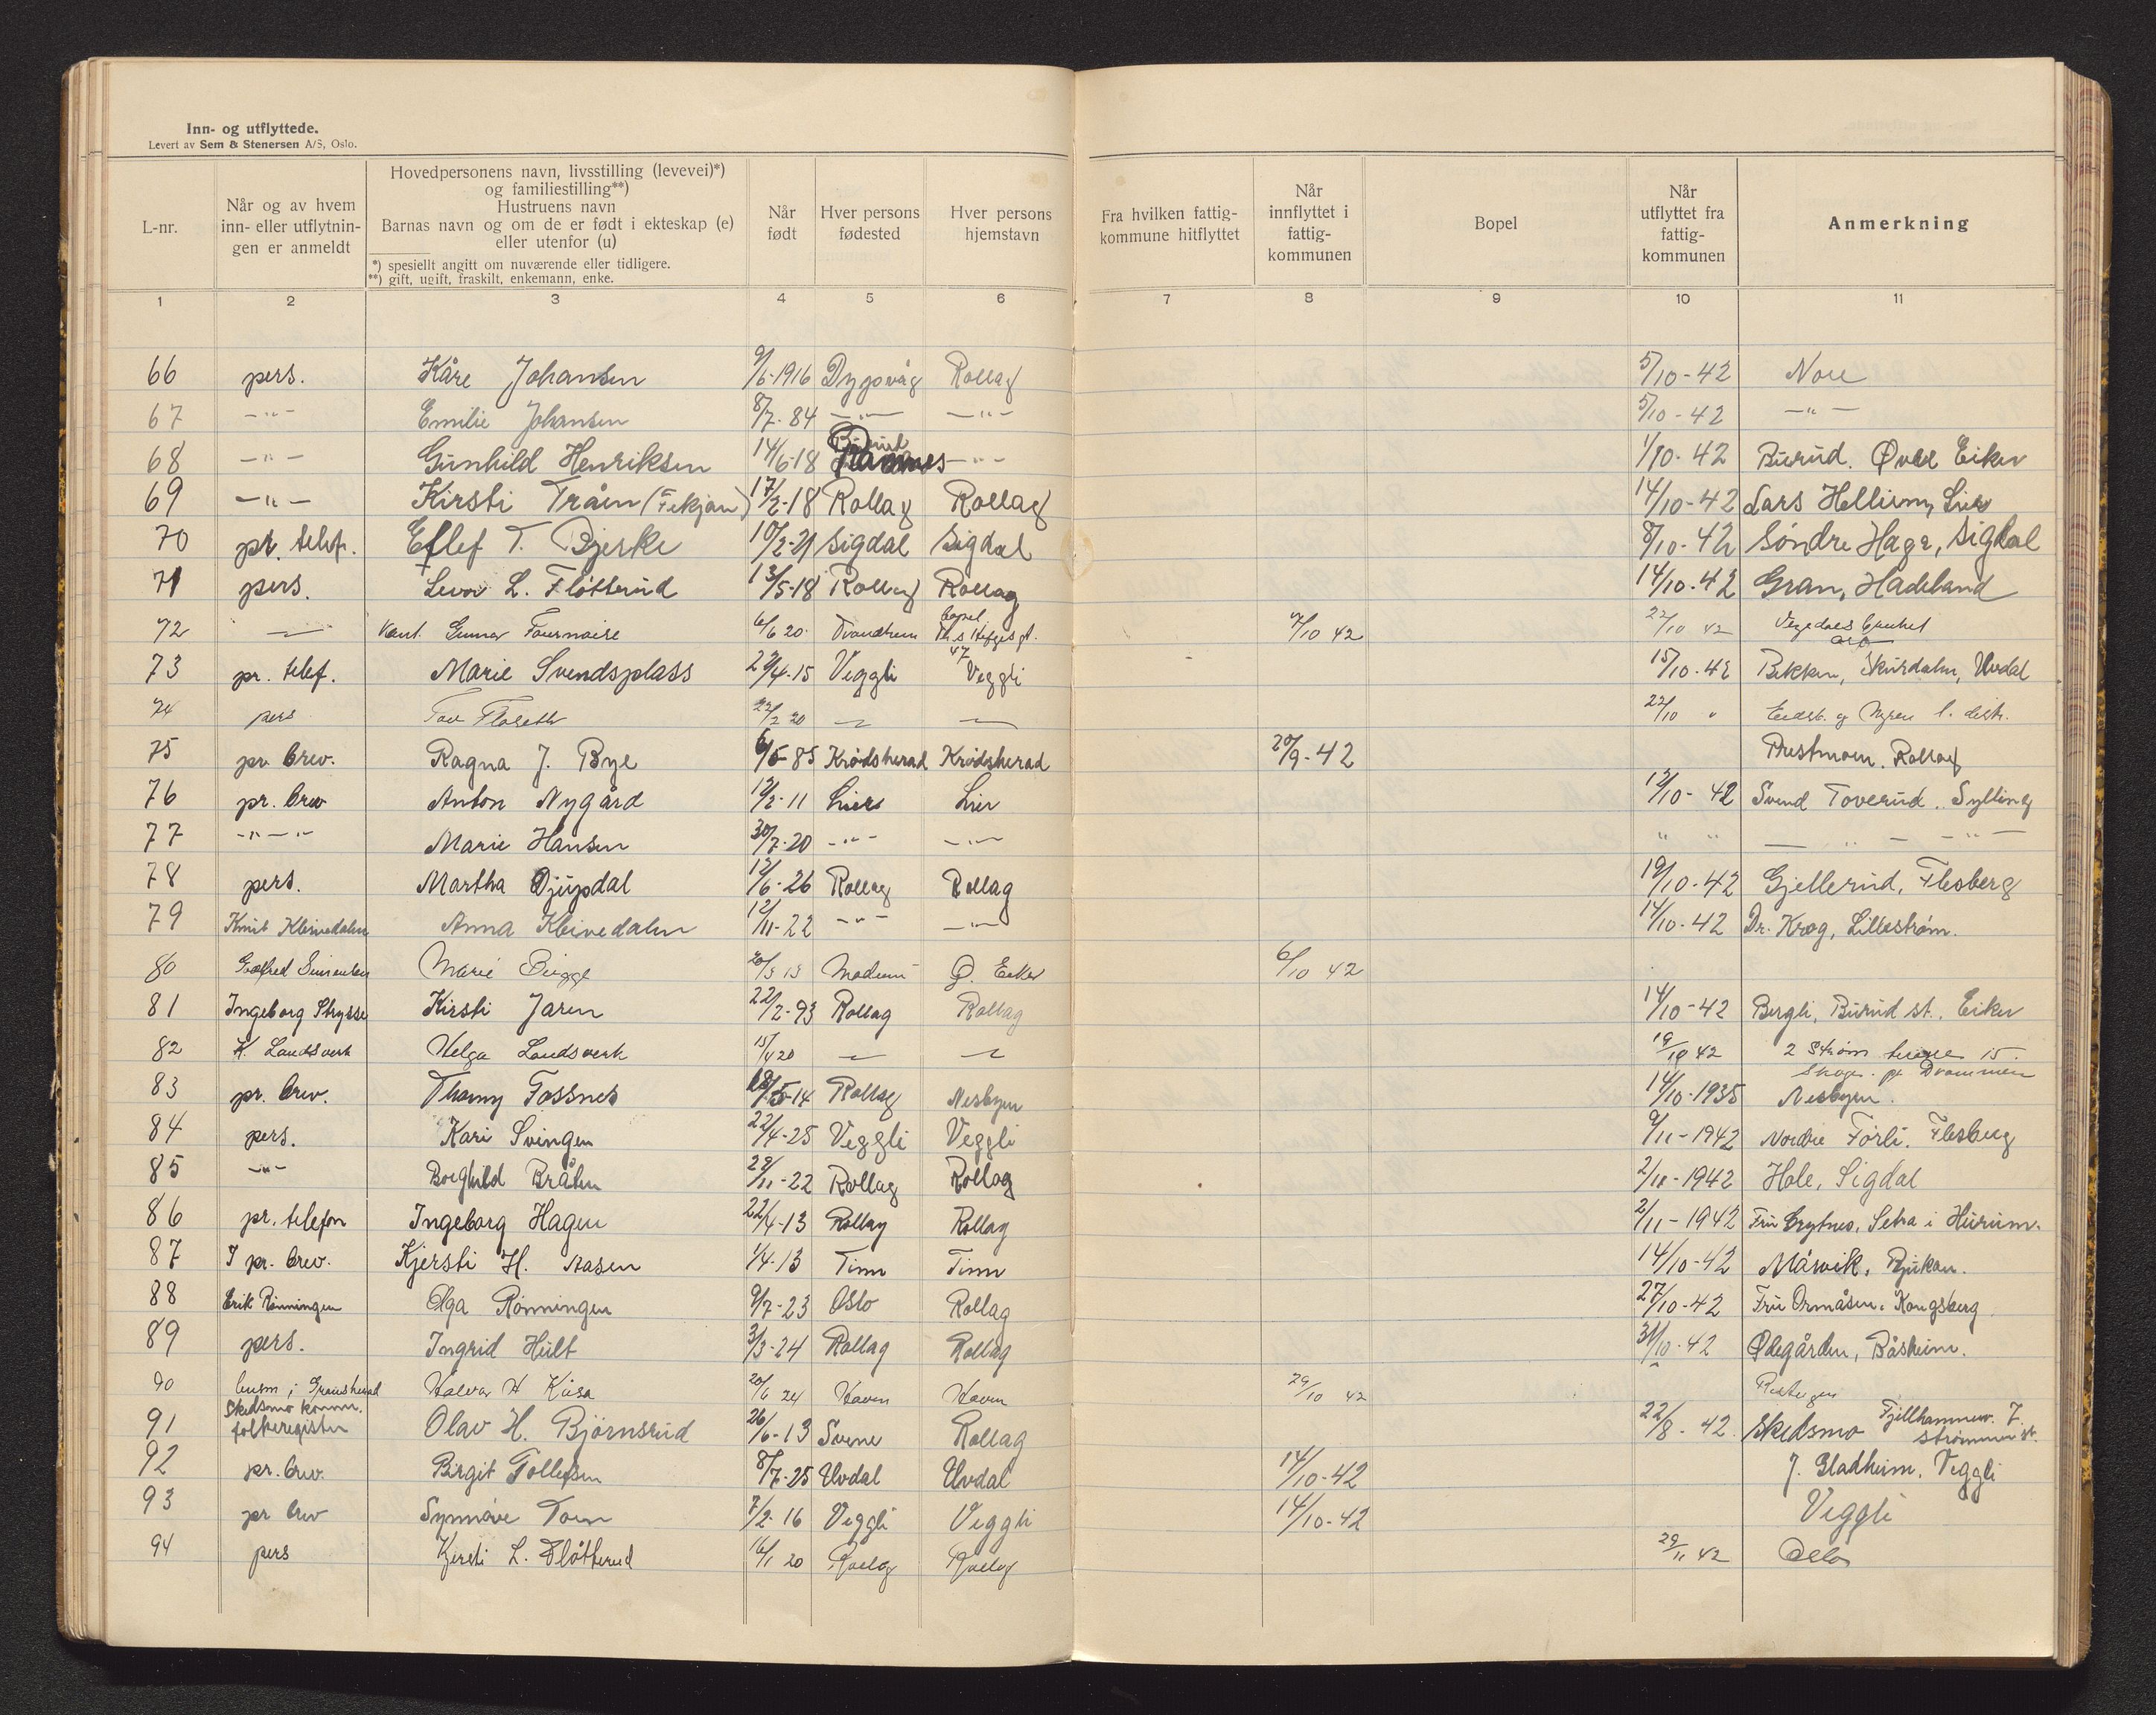 Inn- og utflyttede.
Levert av Sem & Stenersen A/S, Oslo.
L-nr.
Når og av hvem inn- eller utflytnin- gen er anmeldt
Hovedpersonens navn, livsstilling (levevei)*)
og familiestilling**)
Hustruens navn
Barnas navn og om de er født i ekteskap (e)
eller utenfor (u)
*) spesiellt angitt om nuværende eller tidligere.
**) gift, ugift, fraskilt, enkemann, enke.
Når født
Hver persons fødested
Hver persons hjemstavn
Fra hvilken fattig- kommune hitflyttet
Når innflyttet i fattig- kommunen
Bopel
Når utflyttet fra fattig- kommunen
Anmerkning
1 2 3 4 5 6 7 8 9 10 11
66 pers. Kåre Johansen 9/6-1916 Dypvåg Rollag 5/10-42 Nore
67 -"- Emilie Johansen 8/7-84 -"- -"- 5/10-42 -"-
68 -"- Gunhild Henriksen 14/6-18 -"- 1/10-42 Burud. Øvre Eiker
69 -"- Kirsti Tråen (Fekjan) 17/2-18 Rollag Rollag 14/10-42 Lars Hellum, Lier
70 pr. telef. Eflef T. Bjerke 10/2-21 Sigdal Sigdal 8/10-42 Søndre Haga, Sigdal
71 pers. Levor L. Fløtterud 13/5-18 Rollag Rollag 14/10-42 Gran, Hadeland
72 Gunnar 6/6 20 bopel 47 7/10 42 22/10 42
73 pr. telef. Marie Svendsplass 29/4-15 Veggli Veggli 15/10-42 Bekken, Skurdalen, Uvdal
74 pers Tov Floseth 22/2 20 22/10 "
75 pr. brev. Ragna J. Bye 6/5-85 Krødsherad Krødsherad 20/9-42 Prestmoen. Rollag
76 pr. brev Anton Nygård 12/2-11 Lier Lier 12/10-42 Svend Toverud. Sylling
77 -"-"- Marie Hansen 30/7-20 -"- -"- " " - " - -"-
78 pers. Martha Djupdal 12/6-26 Rollag Rollag 19/10-42 Gjellerud, Flesberg
79 Knut Kleivedalen Anna Kleivedalen 12/11-22 -"- -"- 14/10-42 Dr. Krog, Lillestrøm.
80 Marie Bigge Modum Ø. Eiker 6/10 42
81 Ingeborg Strysse Kirsti Jaren 22/2-93 Rollag Rollag 14/10-42 Bergli, Burud st., Eiker
82 K. Landsverk Helga Landsverk 15/4 20 19/10 42 2 Strøm 15. Drammen
83 pr. brev. Thomy Fossnes 5-14 Rollag Nesbyen 14/10-1935 Nesbyen.
84 pers. Kari Svingen 22/4-25 Veggli Veggli 9/11-1942 Nordre Førli. Flesberg
85 -"- Borghild Bråten 29/11-22 Rollag Rollag 2/11-1942 Hole, Sigdal
86 pr. telefon Ingeborg Hagen 22/4-13 Rollag Rollag 2/11-1942 Fru Grytnes, Setra i Hurum.
87 I pr. brev. Kjersti H. Aasen 1/4-13 Tinn Tinn 14/10-42 Mårvik, Rjukan.
88 Erik Rønningen Olga Rønningen 9/7-23 Oslo Rollag 27/10-42 Fru Ormåsen. Kongsberg.
89 pers. Ingrid Hult 3/3-24 Rollag Rollag 31/10-42 Ødegården, Båsheim.
90 i Gransherad Halvor H Kåsa 20/6 24 Hovin Hovin 29/10 42
91 Skedsmo komm. folkeregister Olav H. Bjørnsrud 26/6-13 Svene Rollag 22/8-42. Skedsmo Fjellhammerv. 7. Strømmen st.
92 pr. brev. Birgit Tollefsen 8/7-25 Uvdal Uvdal 14/10-42 J. Gladheim, Veggli
93 pr brev Synnøve Toen 7/2-16 Veggli Veggli 14/10-42 Veggli
94 pers Kjersti L. Fløtterud 16/1 20 Rollag Rollag 29/11 42 Oslo